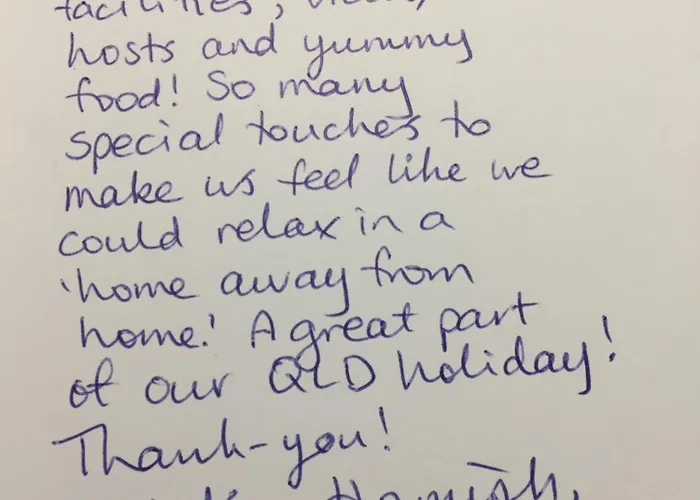 facilities,
hosts and yummy
food! So many
special touches to
make us feel like we
could relax in a
'home away from
home.' A great part
of our QLD holiday!
Thank-you!
Hamish,